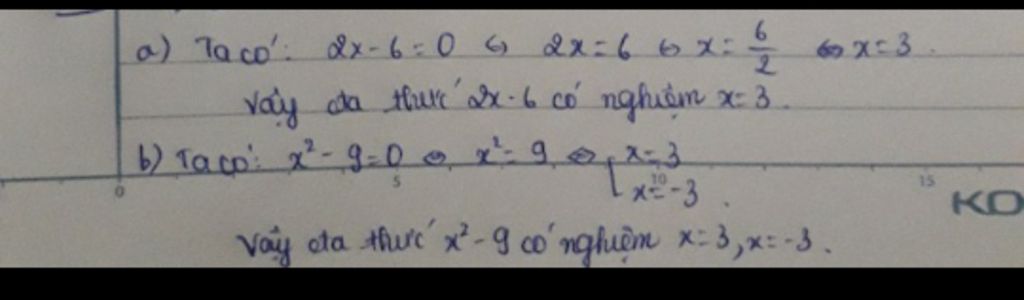 a) Ta có: 2x - 6 = 0 ⇔ 2x = 6 ⇔ x = 6/2 ⇔ x = 3.
Vậy đa thức 2x - 6 có nghiệm x = 3.
b) Ta có: x² - 9 = 0 ⇔ x² = 9 ⇔ [ x = 3
x = -3.
0 5 10 15 KO
Vậy đa thức x² - 9 có nghiệm x = 3, x = -3.